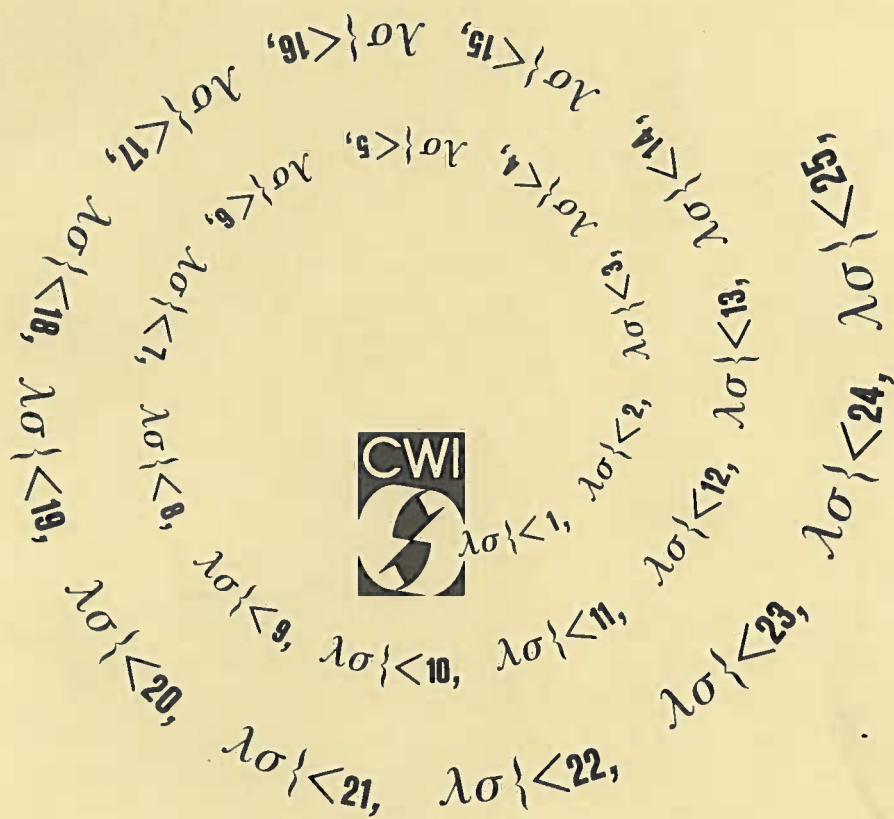 CWI
λσ{<1, λσ{<2, λσ{<3, λσ{<4, λσ{<5, λσ{<6, λσ{<7, λσ{<8, λσ{<9, λσ{<10, λσ{<11, λσ{<12, λσ{<13, λσ{<14, λσ{<15, λσ{<16, λσ{<17, λσ{<18, λσ{<19, λσ{<20, λσ{<21, λσ{<22, λσ{<23, λσ{<24, λσ{<25,